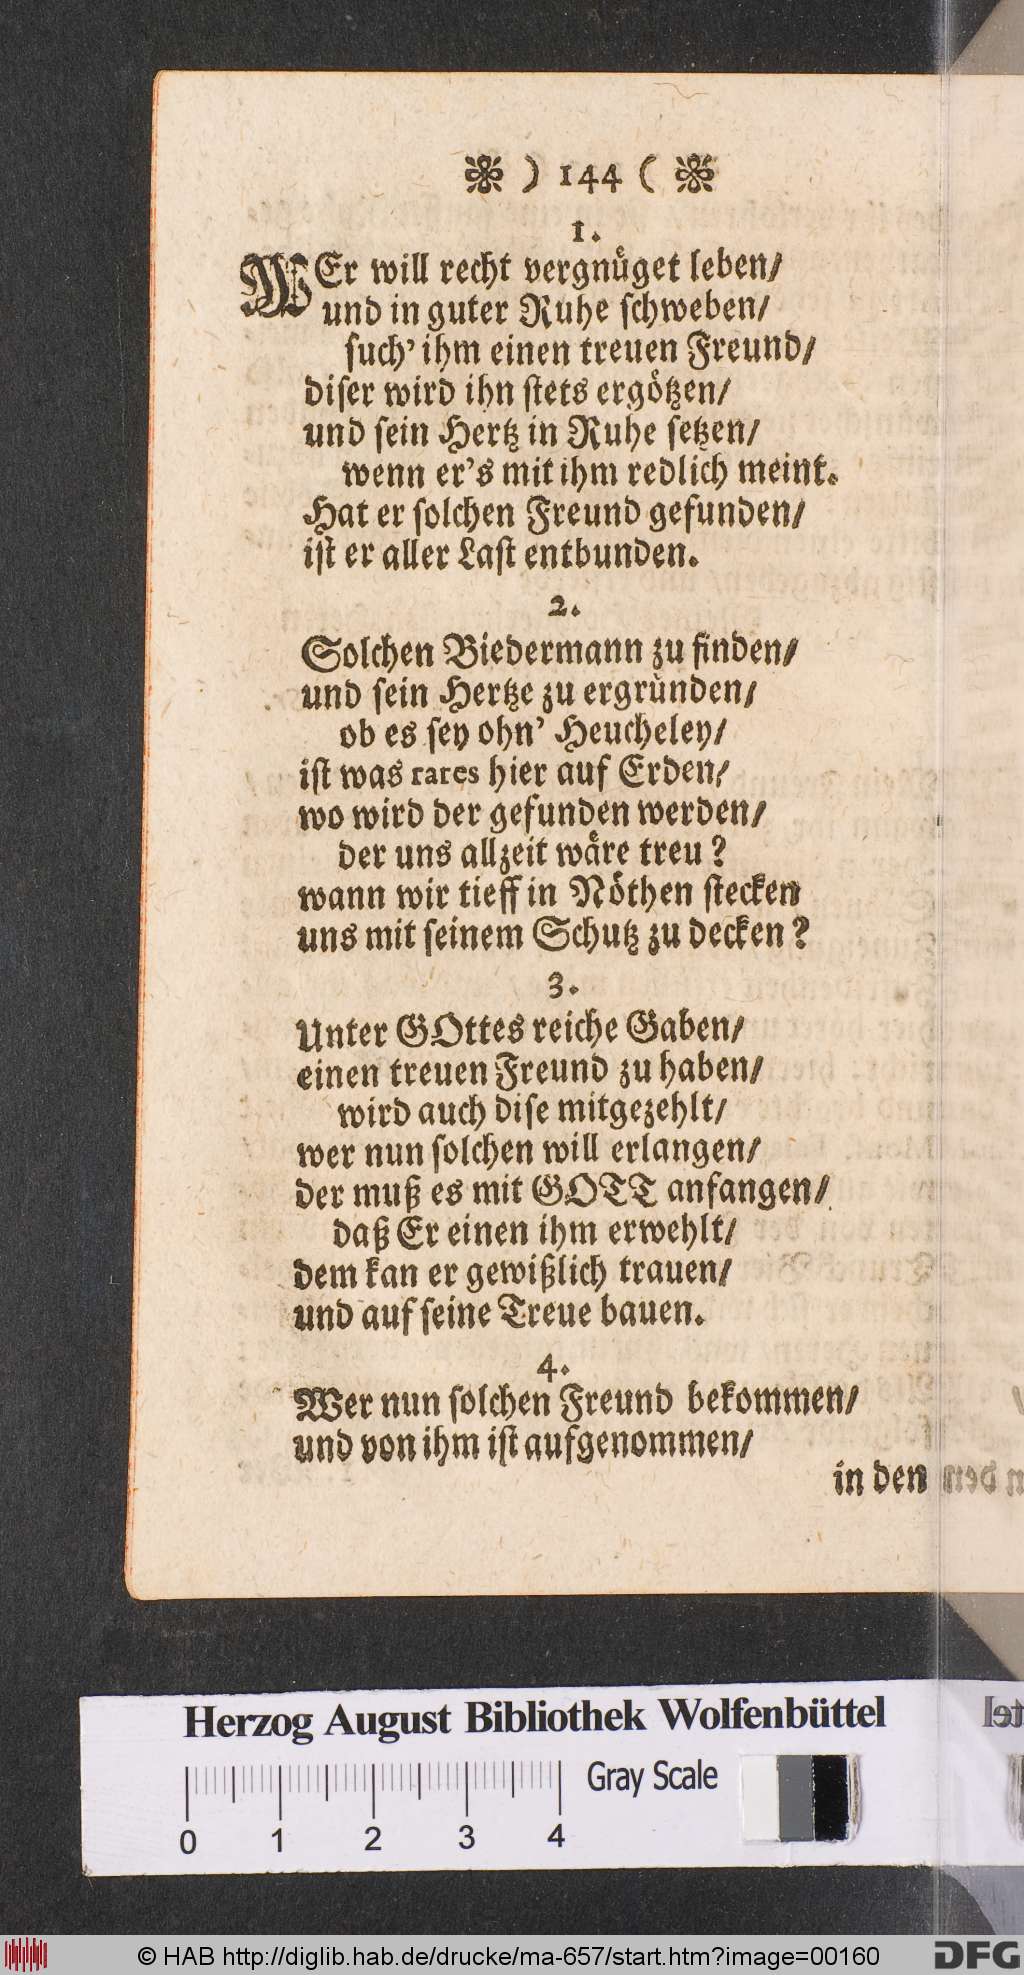 ) 144 (
1.
WEr will recht vergnüget leben/
und in guter Ruhe schweben/
such' ihm einen treuen Freund/
diser wird ihn stets ergötzen/
und sein Hertz in Ruhe setzen/
wenn er's mit ihm redlich meint.
Hat er solchen Freund gefunden/
ist er aller Last entbunden.
2.
Solchen Biedermann zu finden/
und sein Hertze zu ergründen/
ob es sey ohn' Heucheley/
ist was rares hier auf Erden/
wo wird der gefunden werden/
der uns allzeit wäre treu?
wann wir tieff in Nöthen stecken
uns mit seinem Schutz zu decken?
3.
Unter GOttes reiche Gaben/
einen treuen Freund zu haben/
wird auch dise mitgezehlt/
wer nun solchen will erlangen/
der muß es mit GOTT anfangen/
daß Er einen ihm erwehlt/
dem kan er gewißlich trauen/
und auf seine Treue bauen.
4.
Wer nun solchen Freund bekommen/
und von ihm ist aufgenommen/
in den
Herzog August Bibliothek Wolfenbüttel
Gray Scale
0 1 2 3 4
© HAB http://diglib.hab.de/drucke/ma-657/start.htm?image=00160
DFG